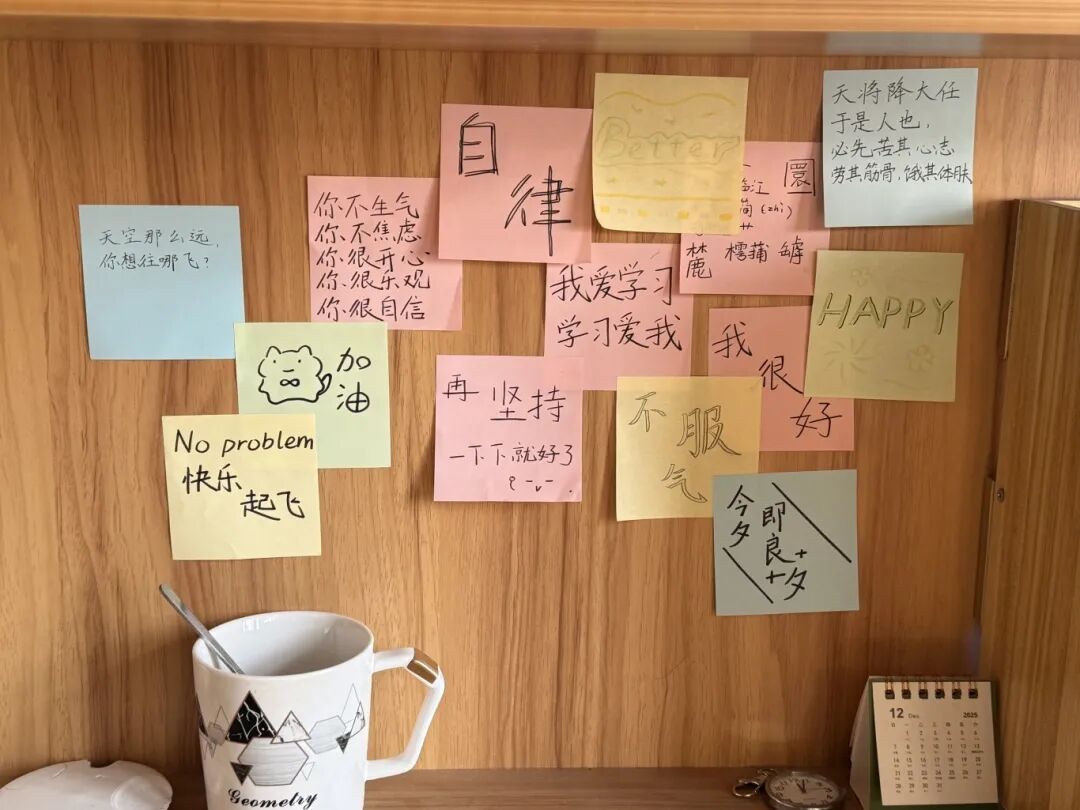 天空那么远,
你想往哪飞?
你不生气
你不焦虑
你很开心
你很乐观
你很自信
自
律
Better
圜
(zhì)
樗蒲 罅
天将降大任
于是人也,
必先苦其心志
劳其筋骨,饿其体肤
我爱学习
学习爱我
HAPPY
我
很
好
加
油
再 坚持
一下下就好了
不
服
气
No problem
快乐
起飞
今夕
即良夕
Geometry
12 Dec.
2025